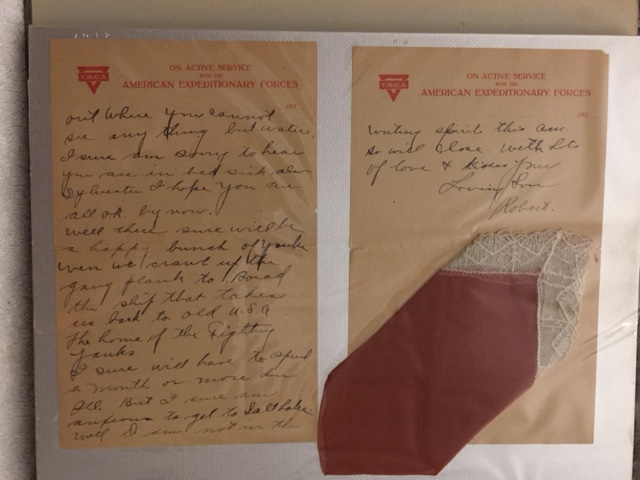 Y.M.C.A.
ON ACTIVE SERVICE
WITH THE
AMERICAN EXPEDITIONARY FORCES
191
out where you cannot
see any thing but water.
I sure am sorry to hear
you are in bed sick also
Sylvester I hope you are
all ok. by now.
Well there sure will be
a happy bunch of Yanks
wen we crawl up the
gang plank to Board
the ship that takes
us back to old U.S.A.
The home of the Fighting
Yanks.
I sure will have to spend
a month or more in
Ill. But I sure am
anxious to get to Salt Lake
well I am not in the
Y.M.C.A.
ON ACTIVE SERVICE
WITH THE
AMERICAN EXPEDITIONARY FORCES
191
writing spirit this am.
so will close with lots
of love & kisses Your
Loving Son
Robert.